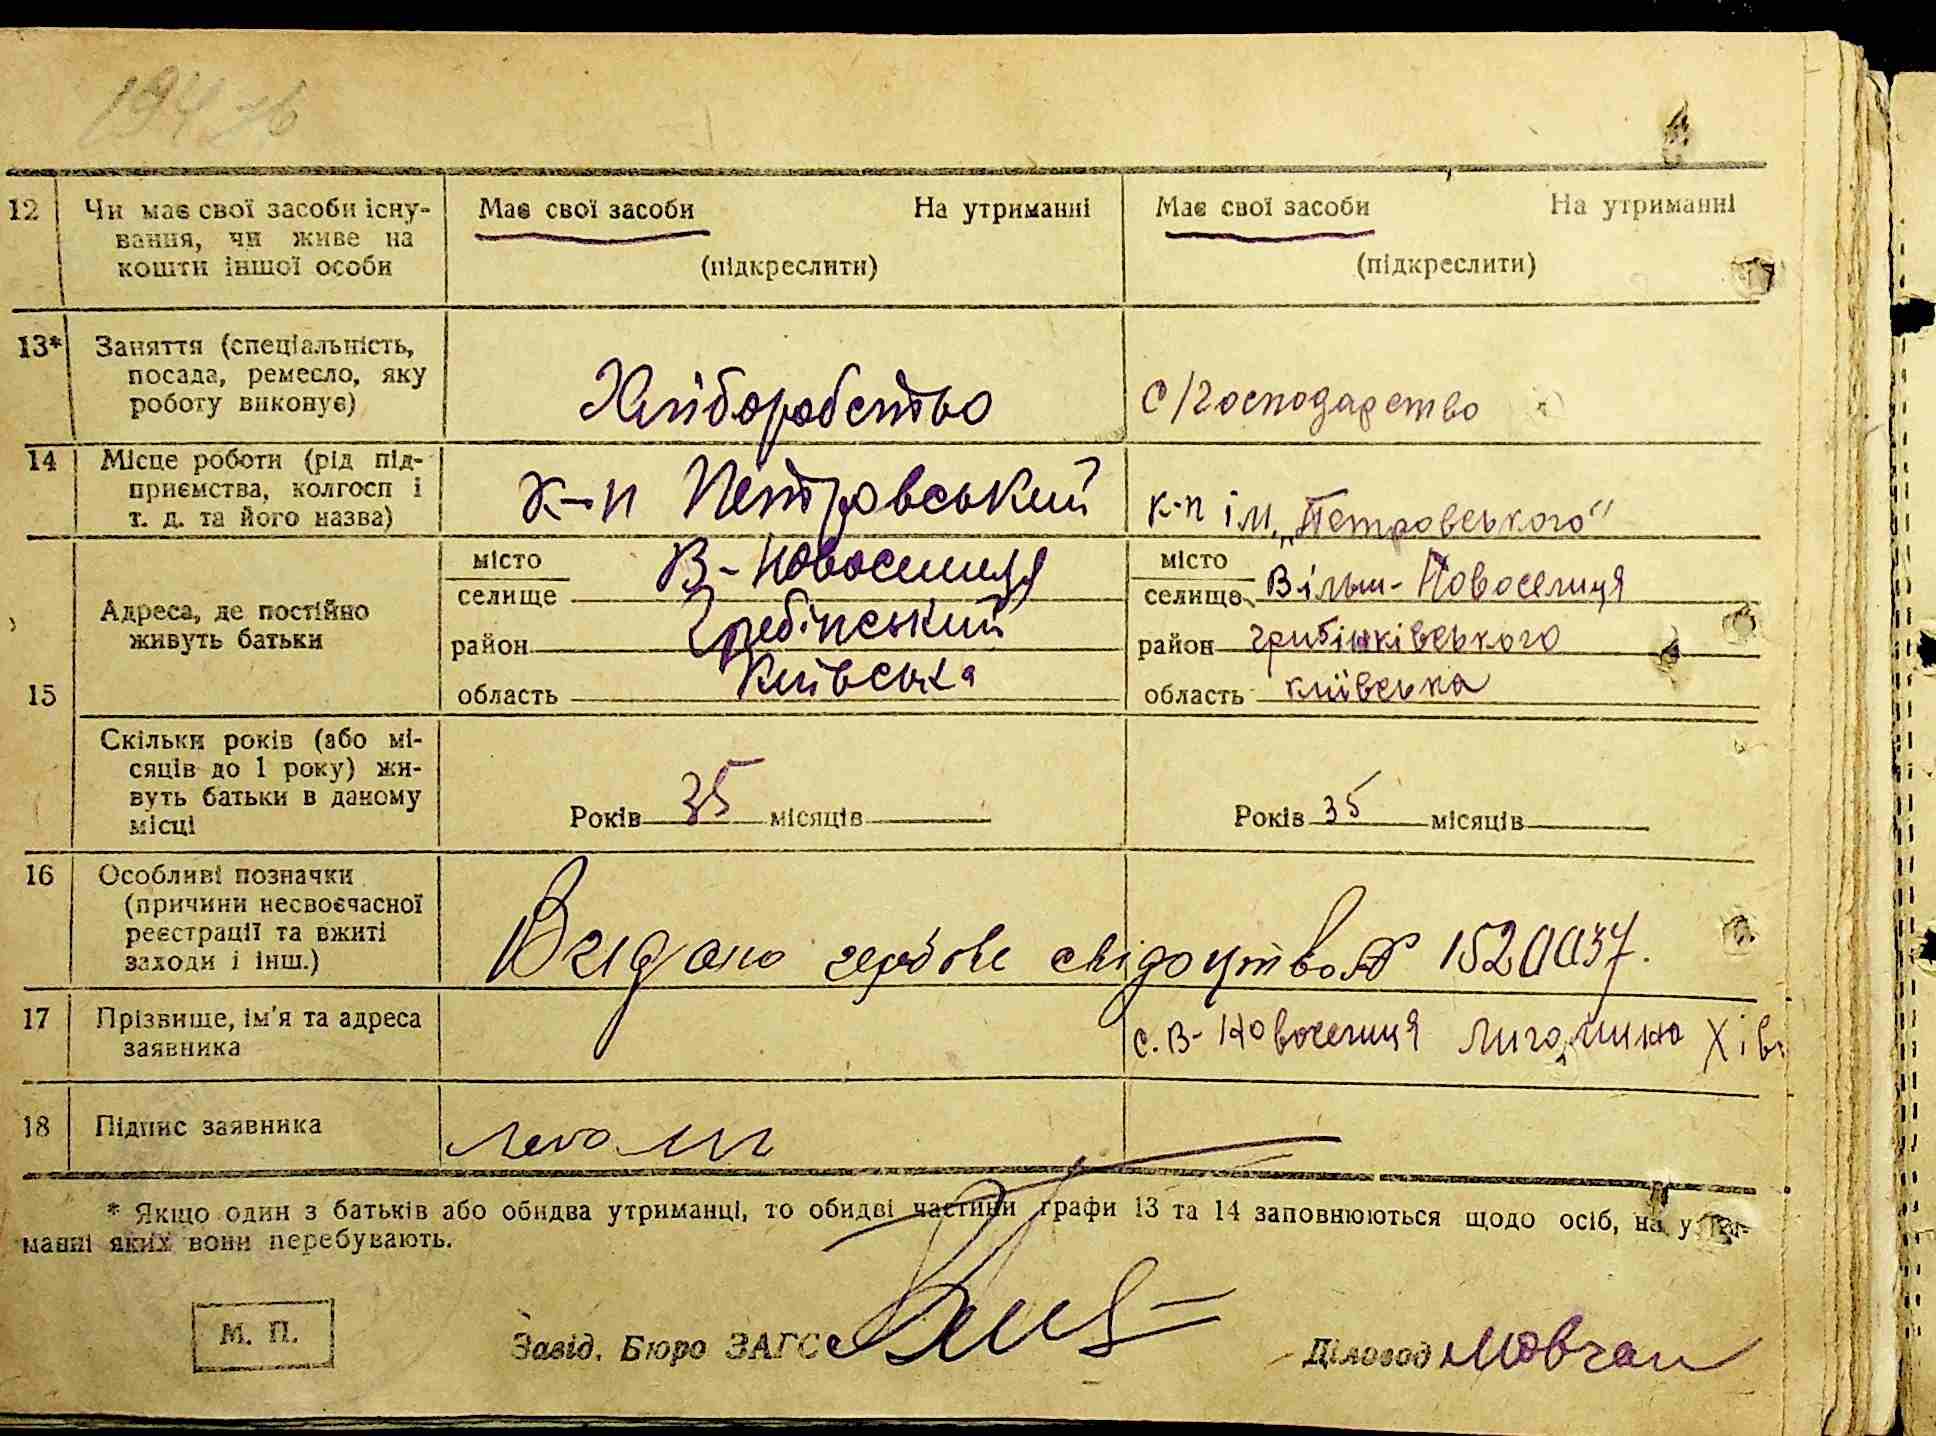 12 Чи має свої засоби існу- Має свої засоби На утриманні Має свої засоби На утриманні
вання, чи живе на
кошти іншої особи (підкреслити) (підкреслити)
13* Заняття (спеціальність,
посада, ремесло, яку Хліборобство С/господарство
роботу виконує)
14 Місце роботи (рід під-
приємства, колгосп і к-п Петровський к-п ім. „Петровського"
т. д. та його назва)
місто В-Новоселиця місто
Адреса, де постійно селище селище Вільш-Новоселиця
живуть батьки район Гребінський район Грибінківського
15 область Київська область київська
Скільки років (або мі-
сяців до 1 року) жи-
вуть батьки в даному
місці Років 35 місяців Років 35 місяців
16 Особливі позначки
(причини несвоєчасної
реєстрації та вжиті Видано гербове свідоцтво № 1520037.
заходи і інш.)
17 Прізвище, ім'я та адреса с. В-Новоселиця
заявника
18 Підпис заявника
* Якщо один з батьків або обидва утриманці, то обидві частини графи 13 та 14 заповнюються щодо осіб, на утри-
манні яких вони перебувають.
М. П. Завід. Бюро ЗАГС Діловод Мовчан